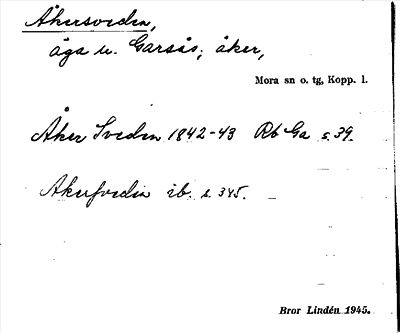 Åkersveden,
äga u. Garsås; åker,
Mora sn o. tg, Kopp. l.
Åker Sveden 1842-43 Rb Ga s. 39.
Akersvedin ib. s. 345.
Bror Lindén 1945.